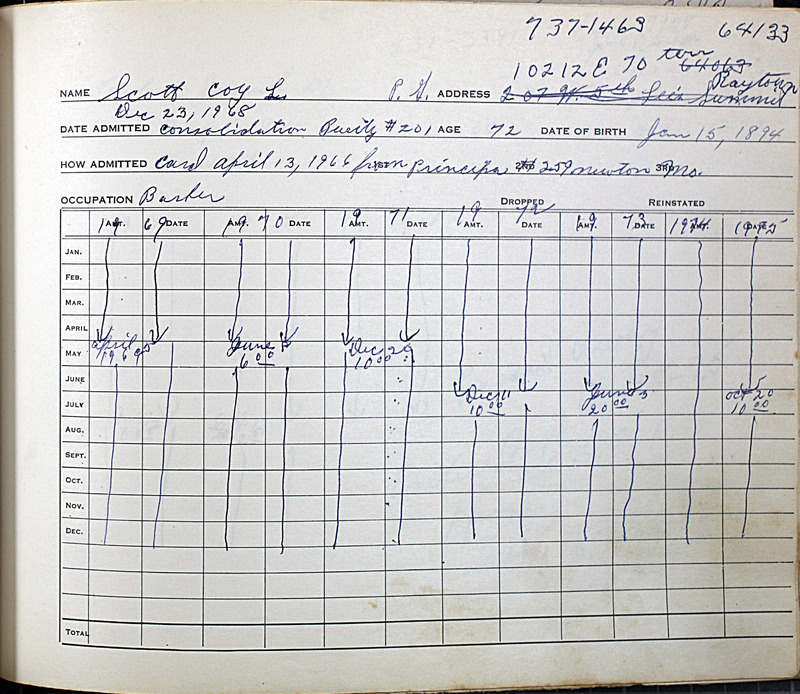 737-1463 64133
10212 E 70 terr 64063
Raytown
NAME Scott Coy L. P. G. ADDRESS 207 W. 5th Lee's Summit
Dec 23, 1968
DATE ADMITTED consolidation Purity #201 AGE 72 DATE OF BIRTH Jan 15, 1894
HOW ADMITTED card april 13, 1966 from 1ST Principa 2ND 259 newton 3RD Mo.
OCCUPATION Barber
DROPPED REINSTATED
19 AMT. 69 DATE 19 AMT. 70 DATE 19 AMT. 71 DATE 19 AMT. 72 DATE 19 AMT. 73 DATE 1974 AMT. 1975 DATE
JAN.
FEB.
MAR.
APRIL
MAY April June Dec 20
1969 6 00 10 00
JUNE
JULY Dec 11 June oct 20
10 00 20 00 10 00
AUG.
SEPT.
OCT.
NOV.
DEC.
TOTAL